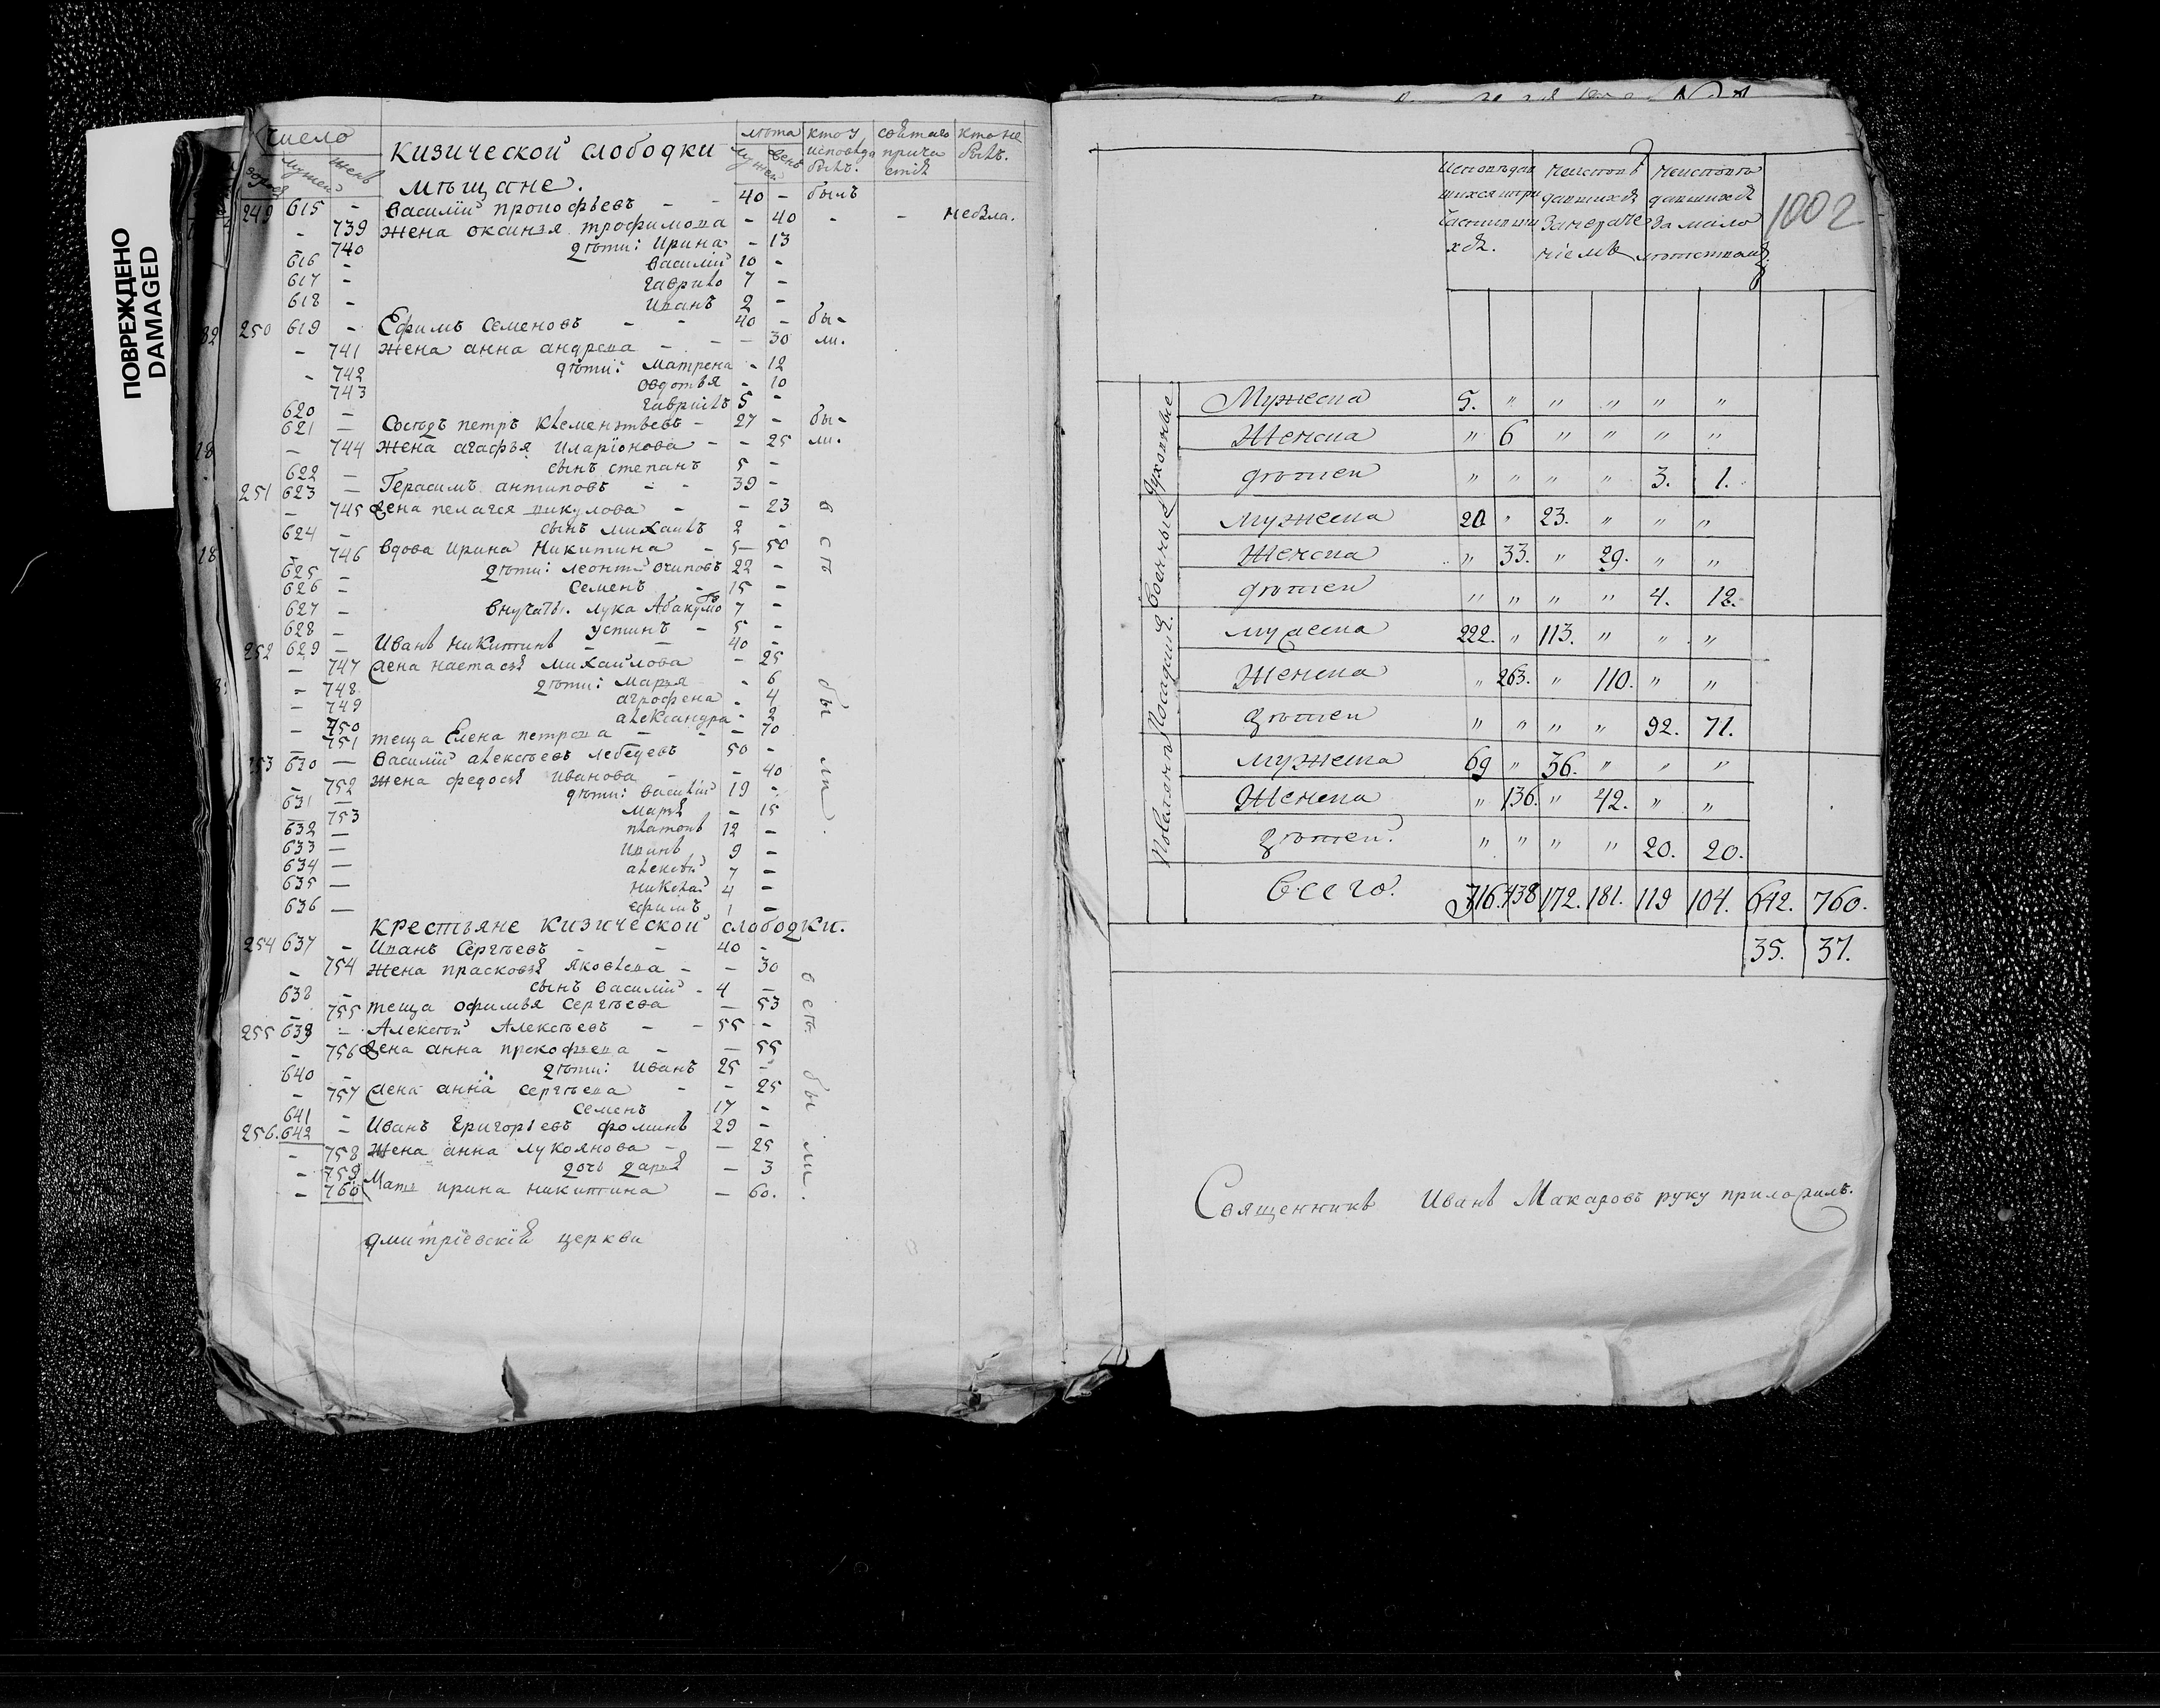 ПОВРЕЖДЕНО
DAMAGED
число
дворовъ мужеск женск
Кизической слободки
мѣщане.
лѣта
мужей жен
кто у исповѣди былъ.
свѣтаго причастія
кто не былъ.
249 615 - Василій прокофьевъ - - 40 - былъ
- 739 Жена оксинья трофимова - 40 - - небыла.
740 дѣти: Ирина - 13
616 - Василій 10 -
617 - гаврило 7 -
618 - Иванъ 2 -
250 619 - Ефимъ Семеновъ - - 40 - бы-
- 741 Жена анна андреева - - - 30 ли.
- 742 дѣти: Матрена - 12
743 овдотья - 10
620 - гаврилъ 5 -
621 - Сосѣдъ петръ Клементьевъ - 27 - бы-
- 744 Жена агафья Иларіонова - - 25 ли.
622 - сынъ степанъ 5 -
251 623 - Герасимъ антиповъ - - 39 -
- 745 жена пелагея никулова - - 23
624 - сынъ михаилъ 2 -
- 746 вдова ирина Никитина - - 50
625 - дѣти: леонтій осиповъ 22 -
626 - Семенъ - 15 -
627 - внучаты. лука Абакумовъ 7 -
628 - устинъ - 5 -
252 629 - Иванъ Никитинъ - - 40 -
- 747 жена настасья михайлова - 25
- 748 дѣти: Марья - 6
- 749 агрофена - 4
- 750 александра - 2
751 теща Елена петрова - - - 70
253 630 - Василій алексѣевъ лебедевъ 50 -
- 752 Жена федосья Иванова - - 40
631 - дѣти: василій 19 -
- 753 марья - 15
632 - платонъ 12 -
633 - Иванъ 9 -
634 - алексѣй 7 -
635 - николай 4 -
636 - ефимъ 1 -
всѣ были.
крестьяне Кизической слободки.
254 637 - Иванъ Сергѣевъ - - 40 -
- 754 Жена прасковья Яковлева - - 30
638 - сынъ василій - 4 -
- 755 теща офимья Сергѣева - 53
255 639 - Алексѣй Алексѣевъ - - 55 -
- 756 жена анна прокофьева - - 55
640 - дѣти: Иванъ 25 -
- 757 жена анна сергѣева - - 25
641 - Семенъ 17 -
256. 642 - Иванъ Григорьевъ фоминъ 29 -
- 758 Жена анна лукоянова - - 25
- 759 дочь дарья - 3
- 760 Мать ирина никитина - 60.
всѣ были.
дмитріевскія церкви
Исповѣдавшихся и причастившихся.
Неисповѣдавшихся За нераченіемъ
Неисповѣдавшихся За малолѣтствомъ
1002
Духовные
Мужеска 5. " " " " "
Женска " 6 " " " "
дѣтей " " " " 3. 1.
Военные
мужеска 20 " 23. " " "
Женска " 33. " 29. " "
дѣтей " " " " 4. 12.
Посадскіе.
мужеска 222. " 113. " " "
Женска " 263. " 110. " "
дѣтей " " " " 92. 71.
мужеска 69 " 36. " " "
Женска " 136. " 42. " "
дѣтей. " " " " 20. 20.
всего. 316. 438 172. 181. 119 104. 642. 760.
35. 37.
Священникъ Иванъ Макаровъ руку приложилъ.